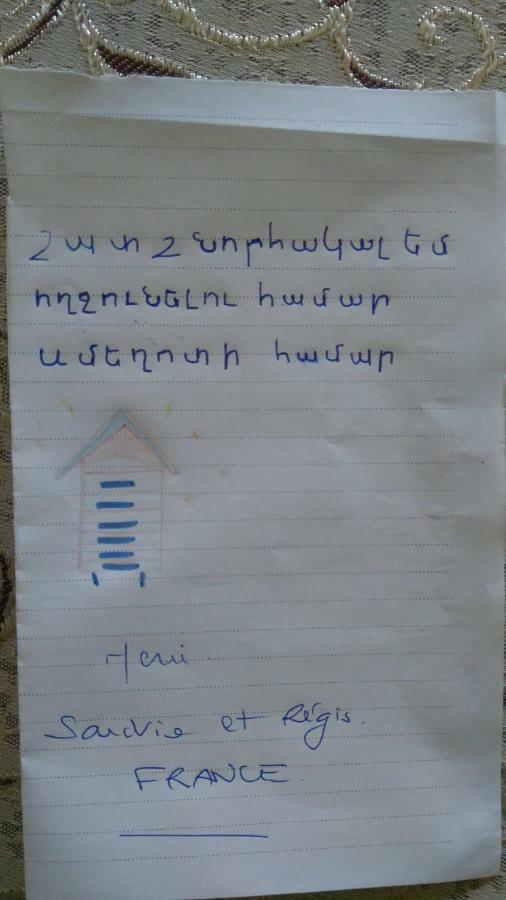 Շատ շնորհակալ եմ
ողջունելու համար
Ամեղոտի համար
Merci
et Régis.
FRANCE